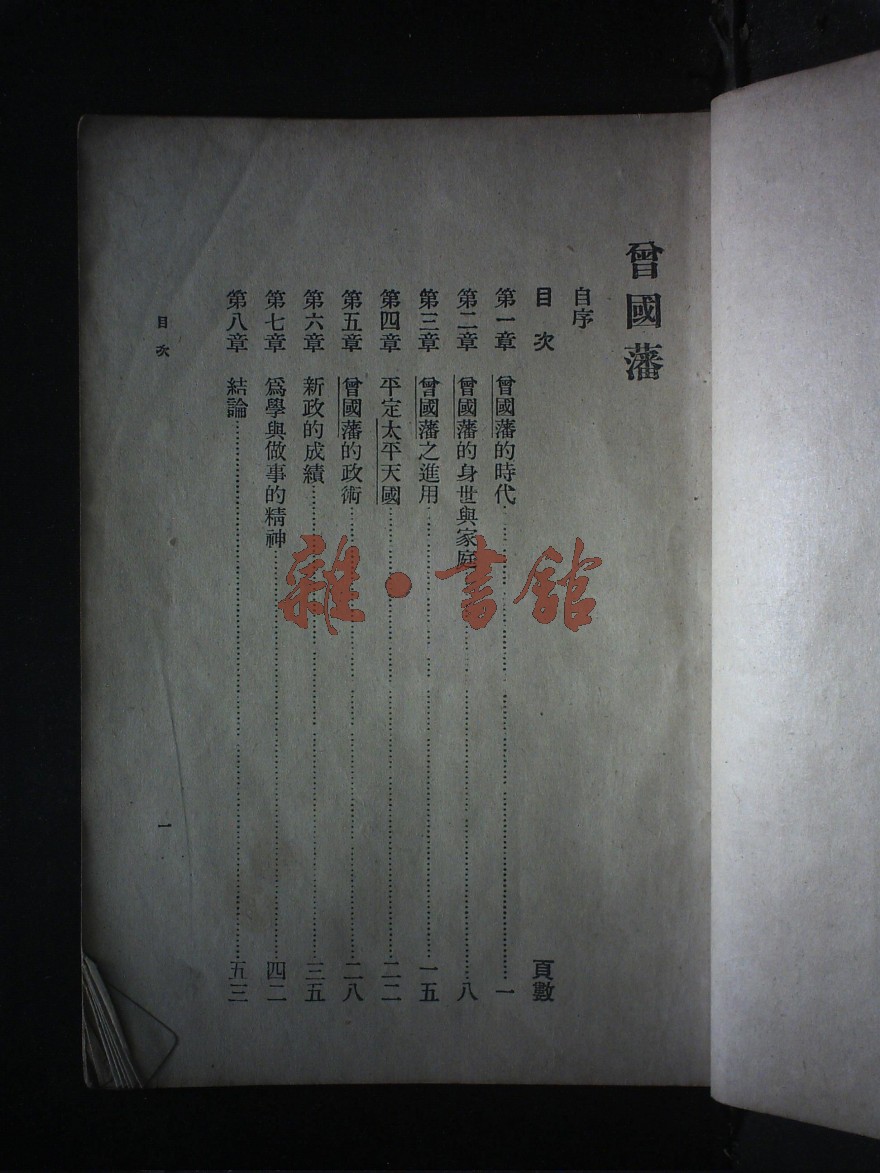 曾國藩
自序
目次 頁數
第一章 曾國藩的時代……一
第二章 曾國藩的身世與家庭……八
第三章 曾國藩之進用……一五
第四章 平定太平天國……二二
第五章 曾國藩的政術……二八
第六章 新政的成績……三五
第七章 爲學與做事的精神……四二
第八章 結論……五三
目次 一
雜·書館